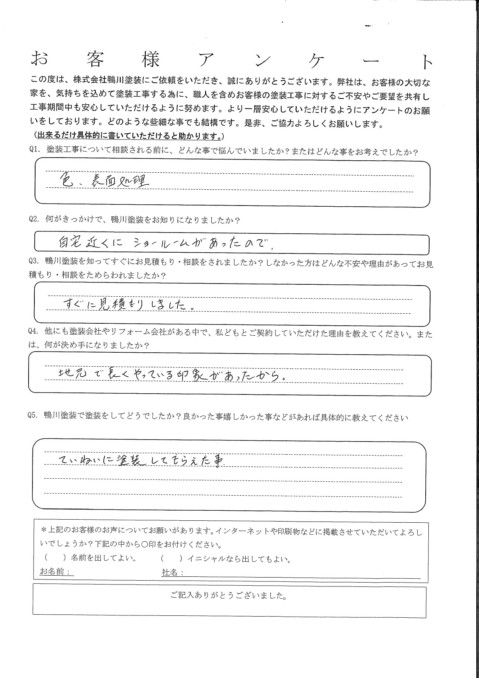 お客様アンケート
この度は、株式会社鴨川塗装にご依頼をいただき、誠にありがとうございます。弊社は、お客様の大切な
家を、気持ちを込めて塗装工事する為に、職人を含めお客様の塗装工事に対するご不安やご要望を共有し
工事期間中も安心していただけるように努めます。より一層安心していただけるようにアンケートのお願
いをしております。どのような些細な事でも結構です。是非、ご協力よろしくお願いします。
(出来るだけ具体的に書いていただけると助かります。)
Q1. 塗装工事について相談される前に、どんな事で悩んでいましたか？またはどんな事をお考えでしたか？
色、表面処理
Q2. 何がきっかけで、鴨川塗装をお知りになりましたか？
自宅近くに ショールームがあったので、
Q3. 鴨川塗装を知ってすぐにお見積もり・相談をされましたか？しなかった方はどんな不安や理由があってお見
積もり・相談をためらわれましたか？
すぐに見積もりしました。
Q4. 他にも塗装会社やリフォーム会社がある中で、私どもとご契約していただけた理由を教えてください。また
は、何が決め手になりましたか？
地元で長くやっている印象があったから。
Q5. 鴨川塗装で塗装をしてどうでしたか？良かった事嬉しかった事などがあれば具体的に教えてください
ていねいに塗装してもらえた事
＊上記のお客様のお声についてお願いがあります。インターネットや印刷物などに掲載させていただいてよろし
いでしょうか？下記の中から○印をお付けください。
（　）名前を出してよい。　（　）イニシャルなら出してもよい。
お名前：　社名：
ご記入ありがとうございました。